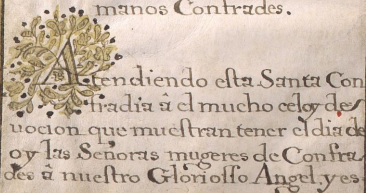 manos Confrades.
Atendiendo esta Santa Con
fradia â el mucho celo y de
vocion que muestran tener el dia de
oy las Señoras mugeres de Confra
des â nuestro Gloriosso Angel, y es